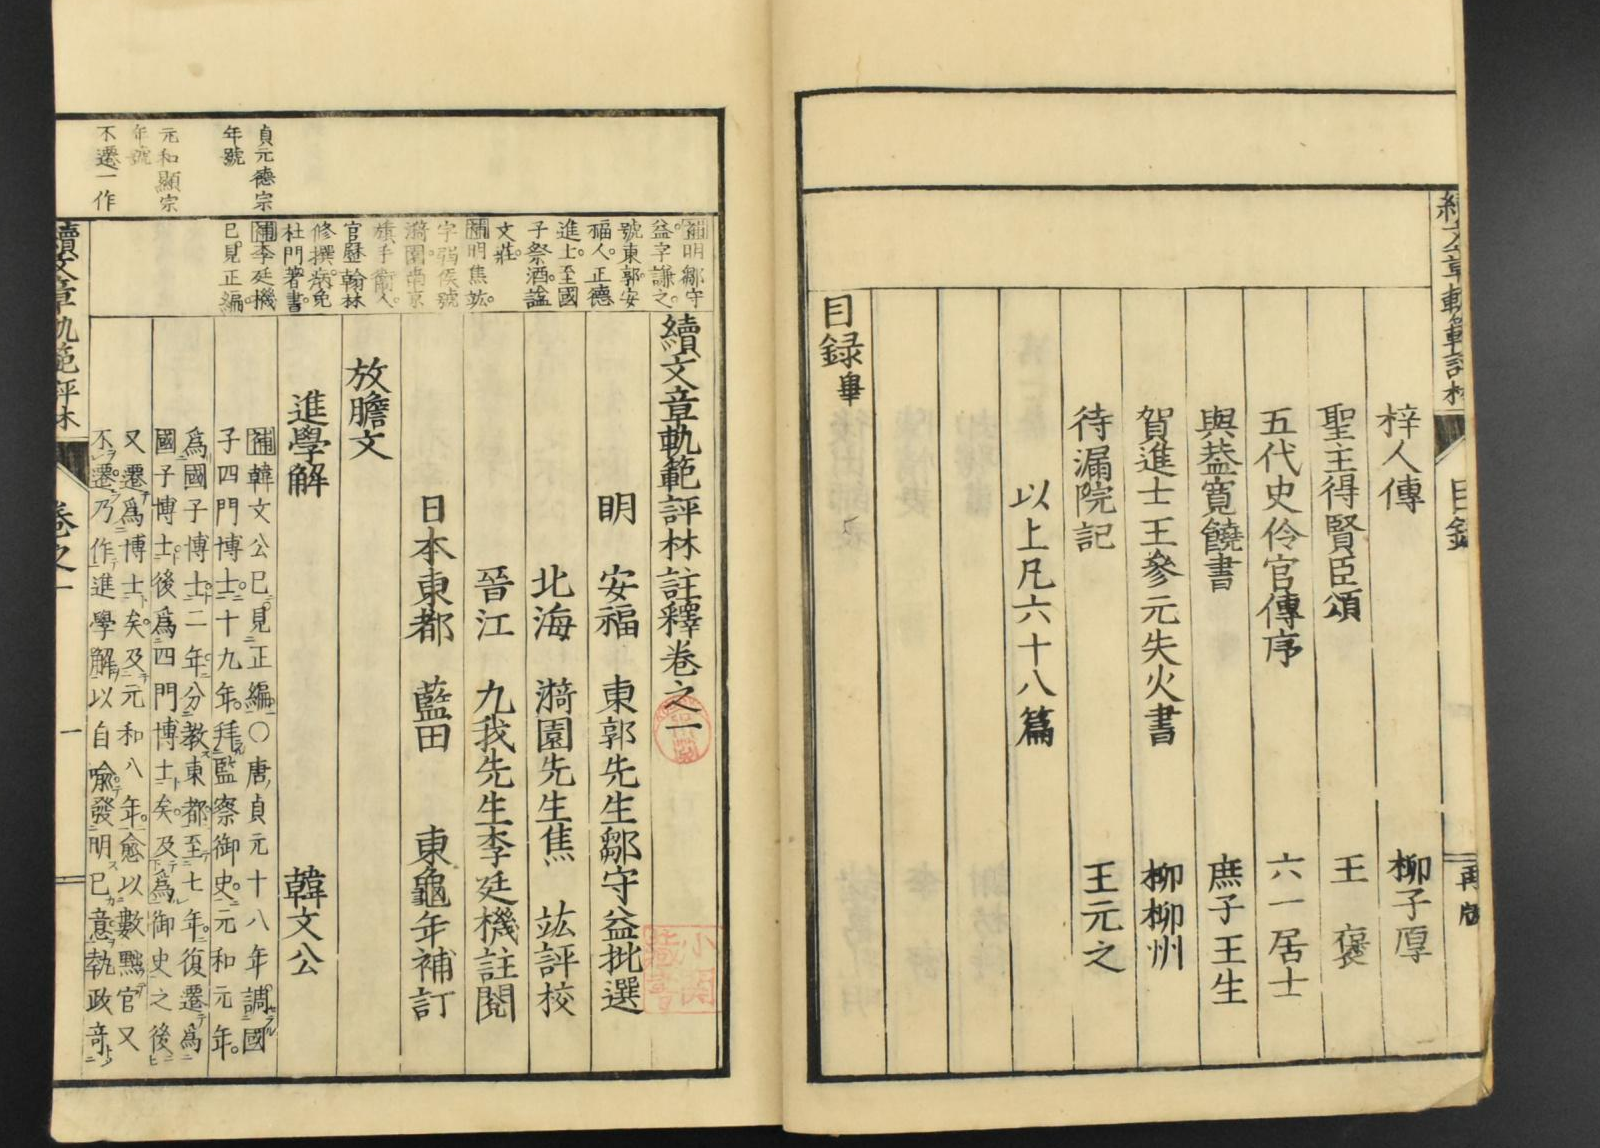 目錄
再版
梓人傳 柳子厚
聖主得賢臣頌 王褒
五代史伶官傳序 六一居士
與葢寬饒書 庶子王生
賀進士王參元失火書 柳柳州
待漏院記 王元之
以上凡六十八篇
目録畢
貞元德宗
年號
元和顯宗
年號
不遷一作
補明鄒守
益字謙之
號東郭安
福人正德
進士至國
子祭酒諡
文莊
補明焦竑
字弱侯號
漪園南京
旗手衞人
官歷翰林
修撰病免
杜門著書
補李廷機
已見正編
續文章軌範評林註釋卷之一
明 安福 東郭先生鄒守益批選
北海 漪園先生焦 竑評校
晉江 九我先生李廷機註閲
日本東都 藍田 東龜年補訂
放膽文
進學解 韓文公
補韓文公已見正編〇唐貞元十八年調國
子四門博士十九年拜監察御史元和元年
爲國子博士二年分教東都至七年復遷爲
國子博士後爲四門博士矣及爲御史之後
又遷爲博士矣及元和八年愈以數黜官又
不遷乃作進學解以自喩發明已意執政竒
續文章軌範評林
卷之一
一